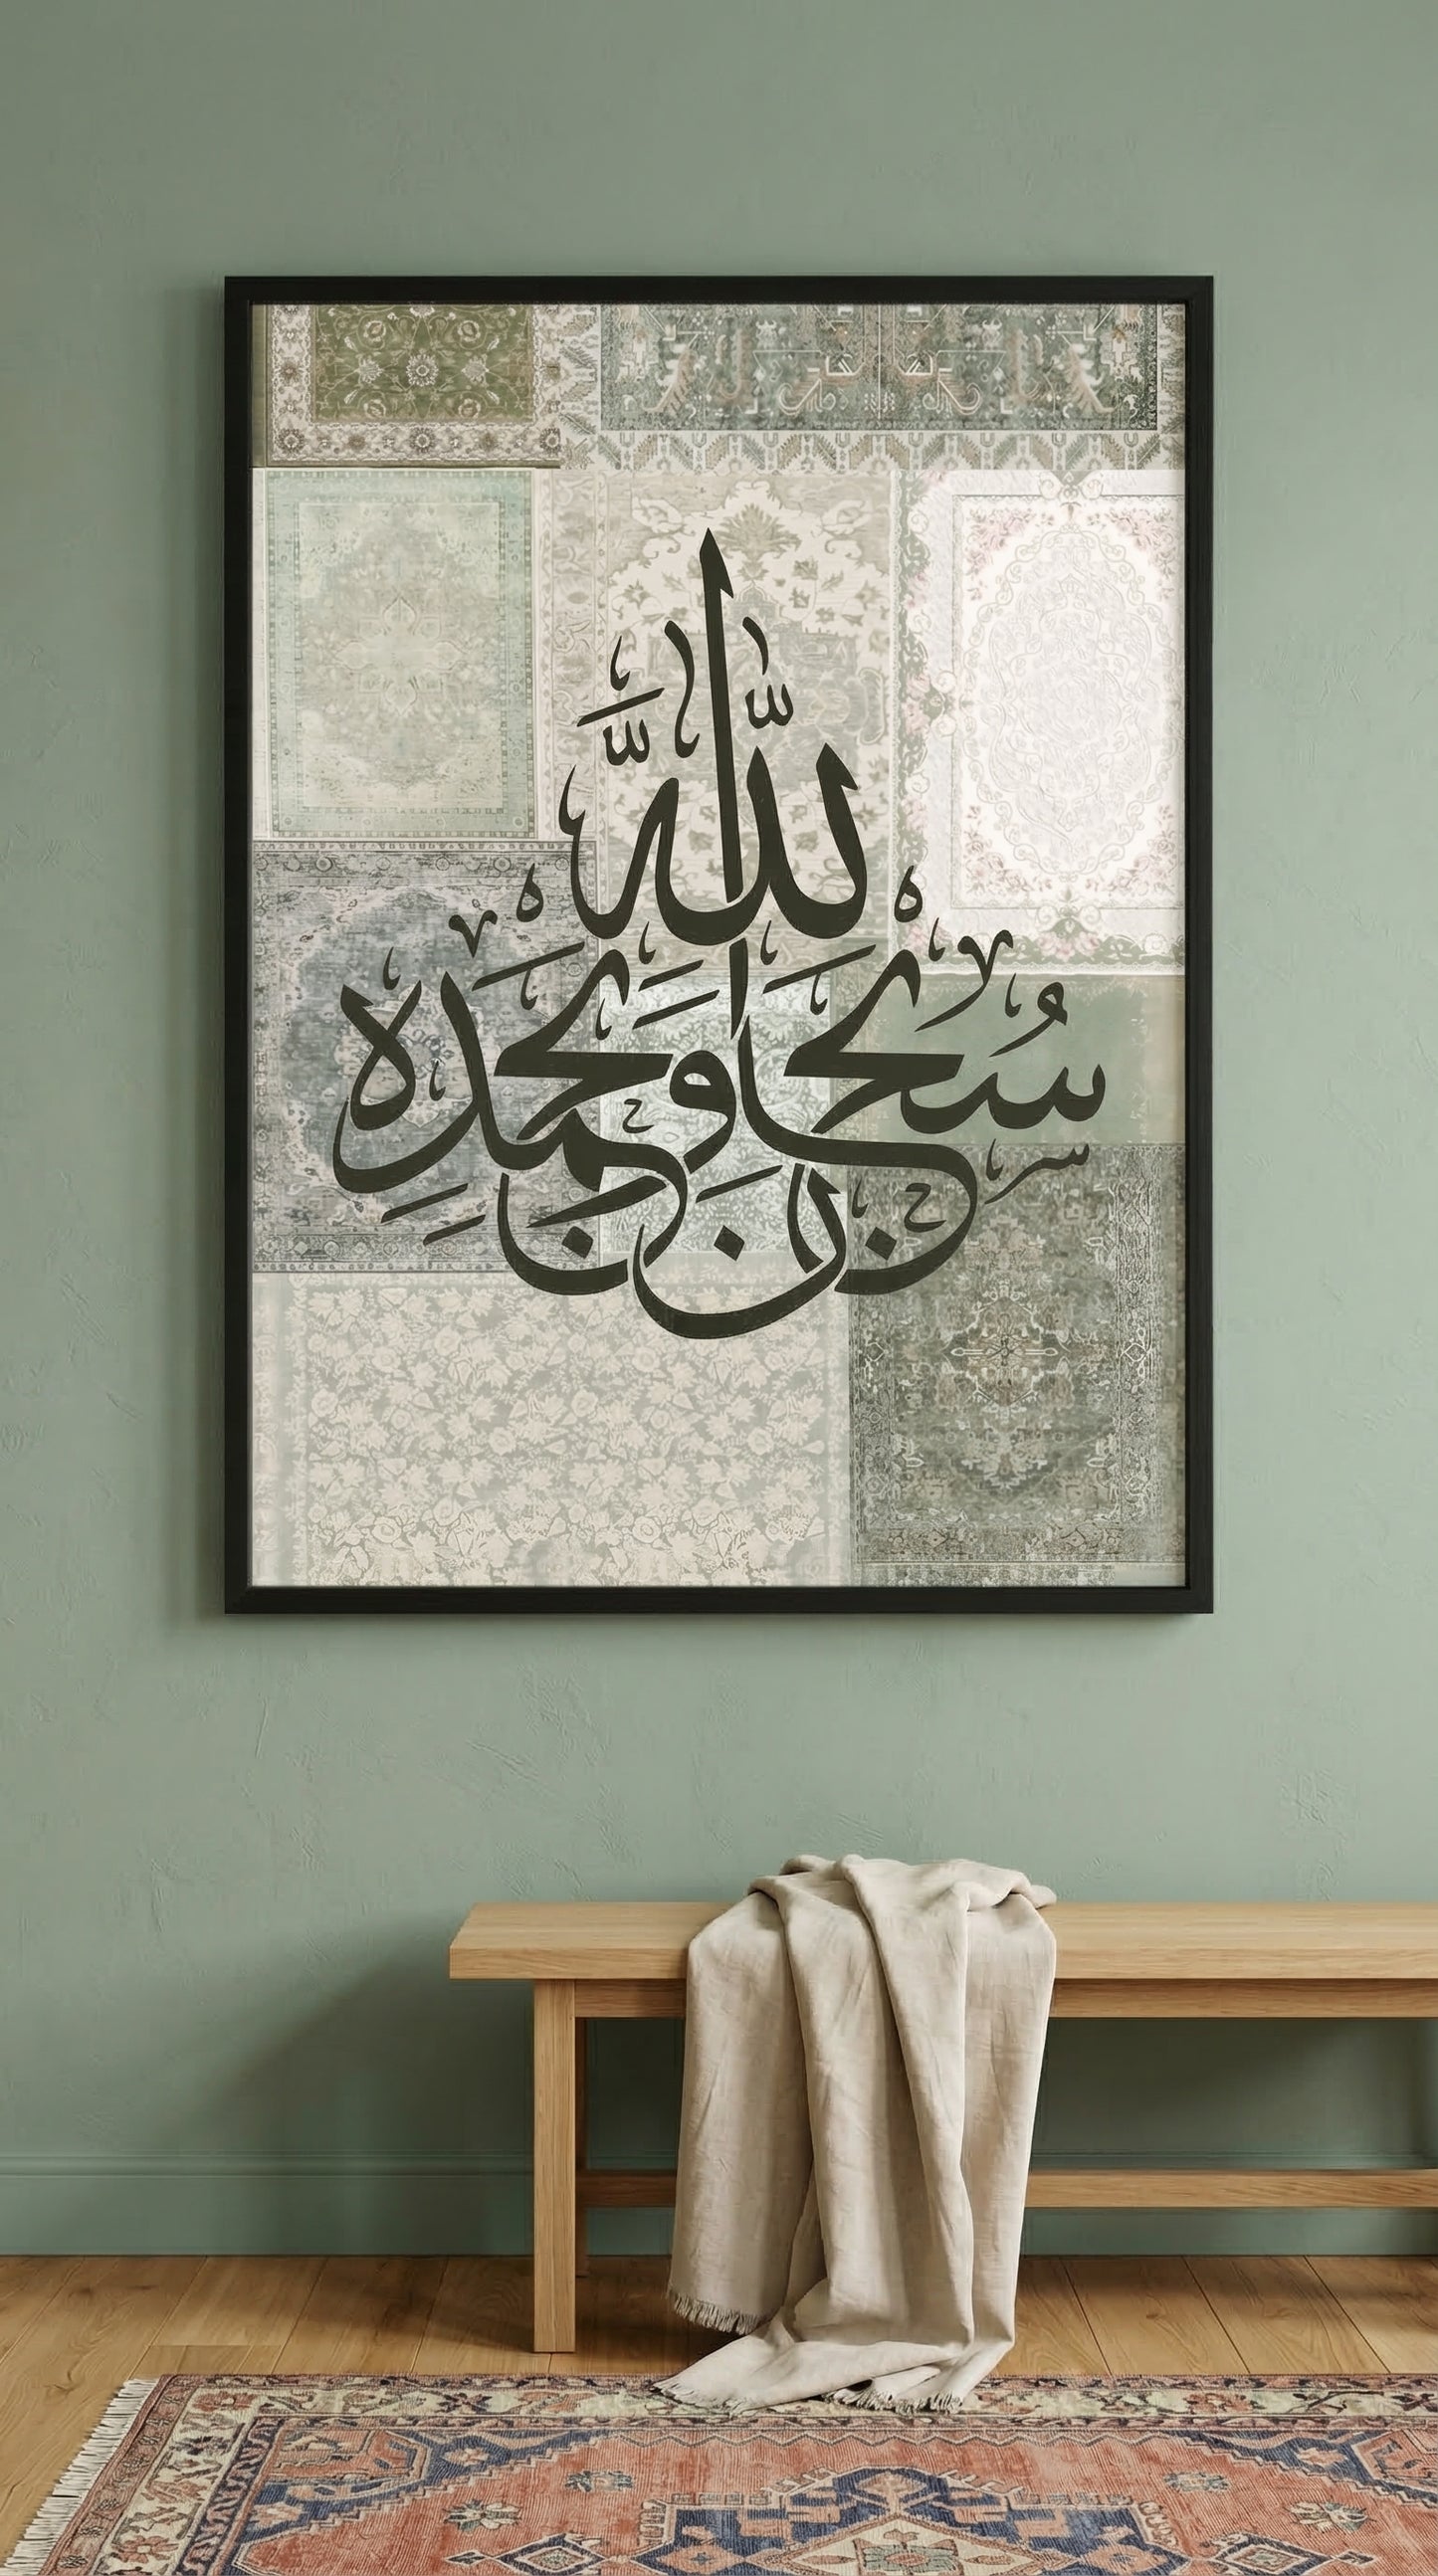 سُبْحَانَ اللَّهِ وَبِحَمْدِهِ